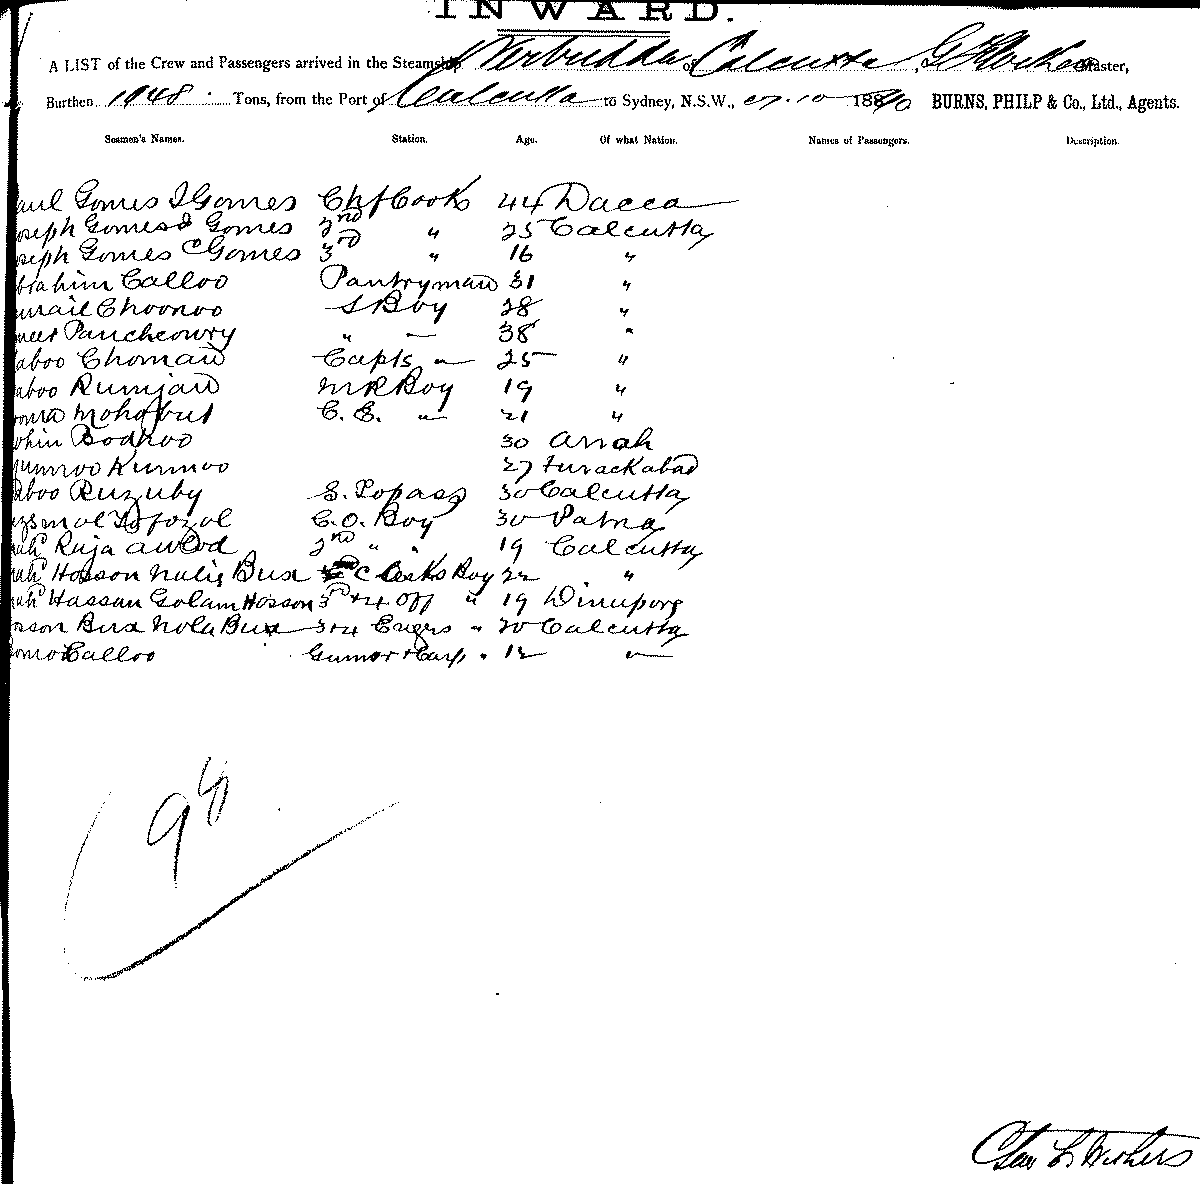 INWARD.
A LIST of the Crew and Passengers arrived in the Steamship Nerbudda of Calcutta, Master,
Burthen 1948 Tons, from the Port of Calcutta to Sydney, N.S.W., 27.10 1890 BURNS, PHILP & Co., Ltd., Agents.
Seamen's Names. Station. Age. Of what Nation. Names of Passengers. Description.
aul Gomes I Gomes Chf Cook 44 Dacca
oseph Gomes J Gomes 2nd " 25 Calcutta
oseph Gomes C Gomes 3rd " 16 "
brahim Calloo Pantryman 31 "
Choonoo S Boy 28 "
Pancheowry " — 38 "
aboo Choman Capts — 25 "
aboo Rumjan M R Boy 19 "
C. E. — 21 "
ohin Bodhoo 30 Arrah
umroo Kunnoo 27 Furackabad
aboo Ruzuby S. Topass 30 Calcutta
C. O. Boy 30 Patna
Raja 2nd " " 19 Calcutta
Hosson Bux Clerks Boy 22 "
Hassan Golam Hosson 3rd + 4 Off " 19 Dinapore
osson Bux Nola Bux 3+4 Engrs " 20 Calcutta
Calloo Gunnr + Carp " 12 —
98